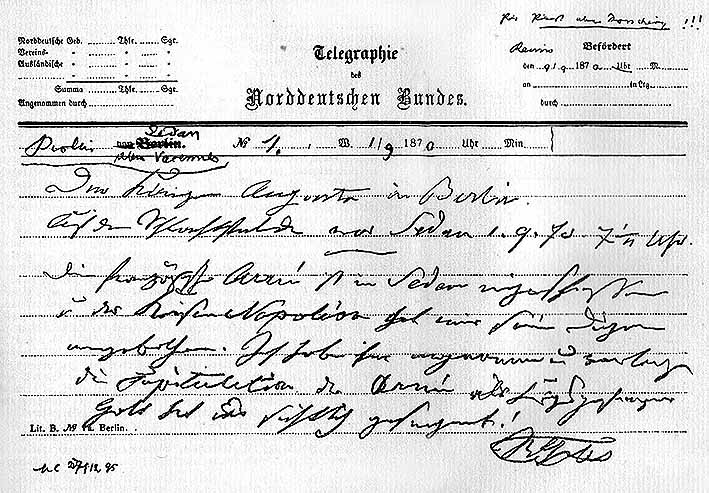 !!!
Norddeutsche Geb. Thlr. Sgr.
Vereins- " "
Ausländische " "
Summa Thlr. Sgr.
Angenommen durch
Telegraphie
des
Norddeutschen Bundes.
Befördert
den 9/9 1870 Uhr M.
an in Ltg.
durch
Sedan
von Berlin.
über Varennes
№ 4. W. 1/9 1870 Uhr Min.
Der Königin Augusta in Berlin.
Auf dem Schlachtfelde vor Sedan 1. 9. 70 Uhr.
Die französische Armee ist in Sedan eingeschlossen
u der Kaiser Napoleon hat mir seinen Degen
angebothen. Ich habe ihn angenommen u verlange
die Capitulation der Armee als Kriegsgefangene
Gott hat uns sichtlich gesegnet!
Lit. B. № Berlin.